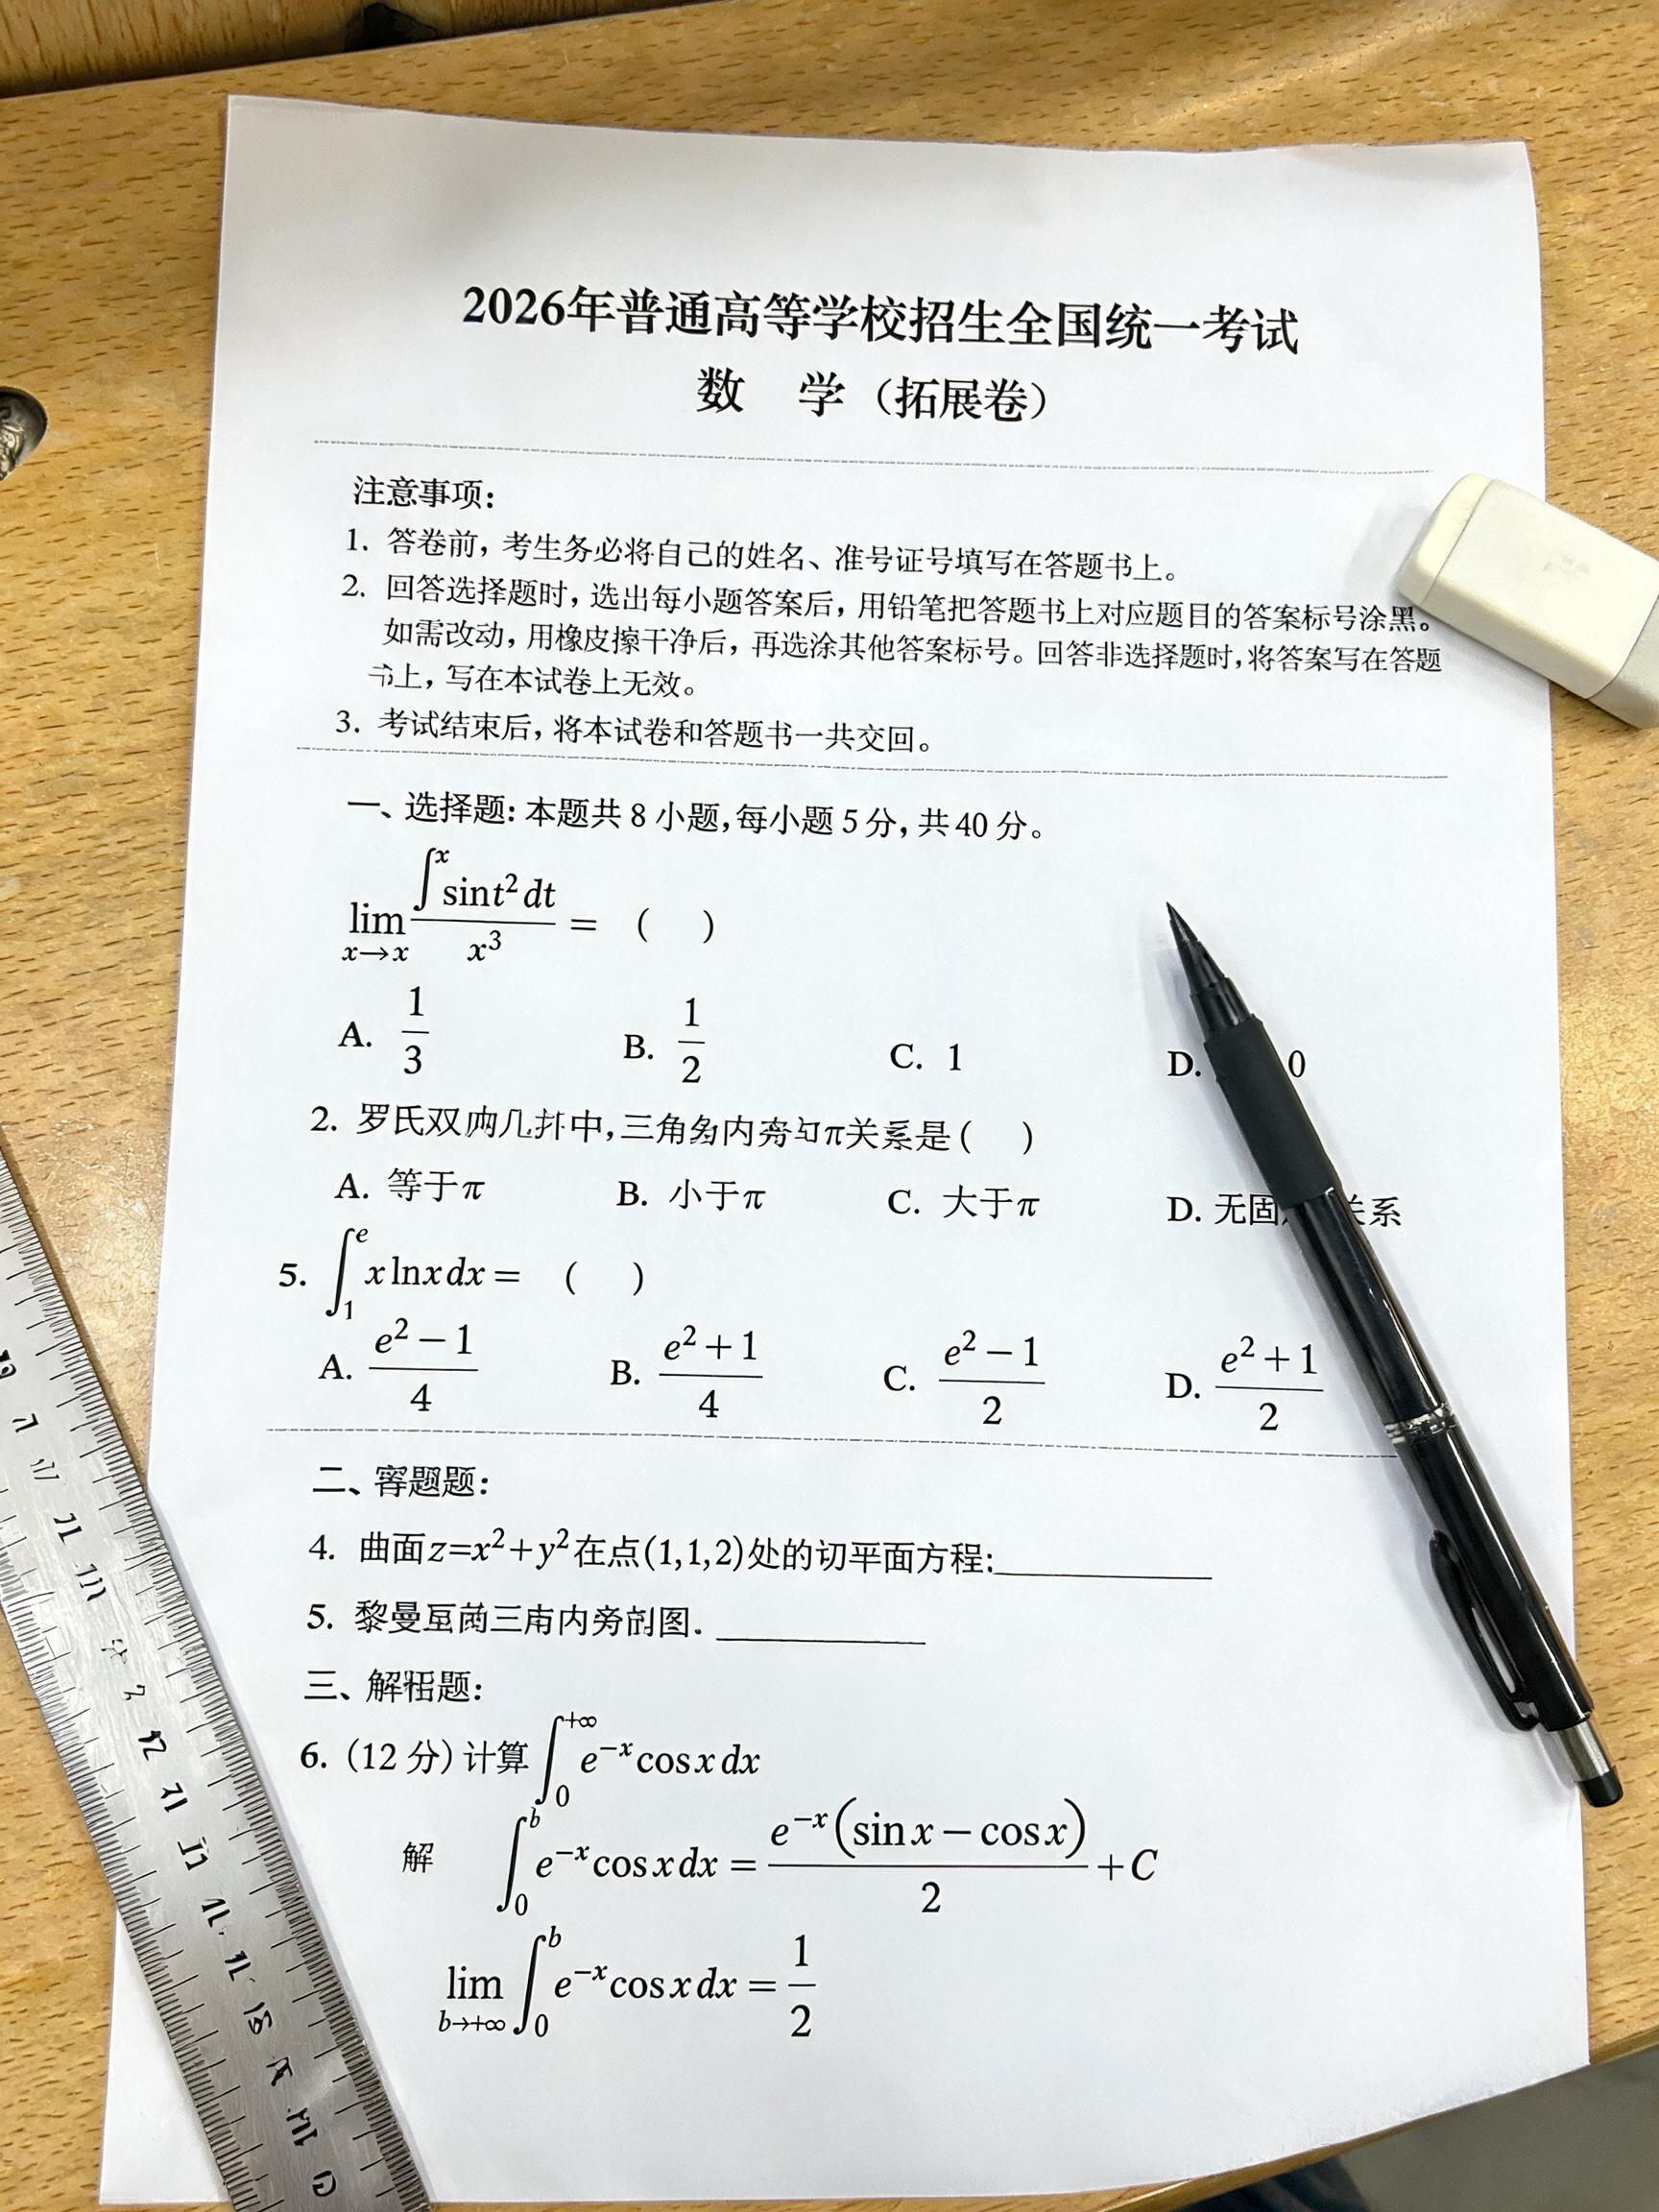 2026年普通高等学校招生全国统一考试
数 学（拓展卷）
注意事项：
1. 答卷前，考生务必将自己的姓名、准号证号填写在答题书上。
2. 回答选择题时，选出每小题答案后，用铅笔把答题书上对应题目的答案标号涂黑。
如需改动，用橡皮擦干净后，再选涂其他答案标号。回答非选择题时，将答案写在答题
书上，写在本试卷上无效。
3. 考试结束后，将本试卷和答题书一共交回。
一、选择题：本题共 8 小题，每小题 5 分，共 40 分。
lim x→x ∫^x sint² dt / x³ = ( )
A. 1/3 B. 1/2 C. 1 D. 0
2. 罗氏双几中，三角内π关系是( )
A. 等于π B. 小于π C. 大于π D. 无固关系
5. ∫_1^e x lnx dx = ( )
A. (e² − 1)/4 B. (e² + 1)/4 C. (e² − 1)/2 D. (e² + 1)/2
二、题题：
4. 曲面z=x²+y²在点(1,1,2)处的切平面方程:
5. 黎曼三内旁图.
三、解题：
6. (12 分) 计算 ∫_0^{+∞} e^{−x} cosx dx
解 ∫_0^b e^{−x} cosx dx = e^{−x}(sinx − cosx)/2 + C
lim b→+∞ ∫_0^b e^{−x} cosx dx = 1/2